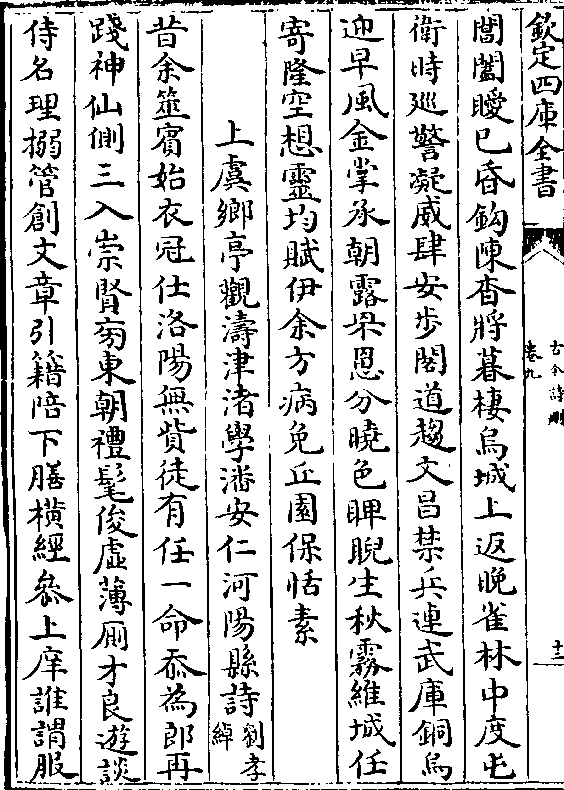 欽定四庫全書
古今詩刪
卷九
十二
閶闔曖已昏鈎陳杳將暮棲烏城上返晚雀林中度屯
衛時巡警凝威肆安步閣道趨文昌禁兵連武庫銅烏
迎早風金掌承朝露罘罳分曉色睥睨生秋霧維城任
寄隆空想靈均賦伊余方病免丘園保恬素
上虞鄉亭觀濤津渚學潘安仁河陽縣詩劉孝綽
昔余筮賓始衣冠仕洛陽無貲徒有任一命忝為郎再
踐神仙側三入崇賢旁東朝禮髦俊虛薄厠才良遊談
侍名理搦管創文章引籍陪下膳横經參上庠誰謂服